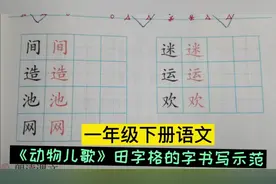 间 间 迷 迷
造 造 运 运
池 池 欢 欢
网 网
一年级下册语文
《动物儿歌》田字格的字书写示范